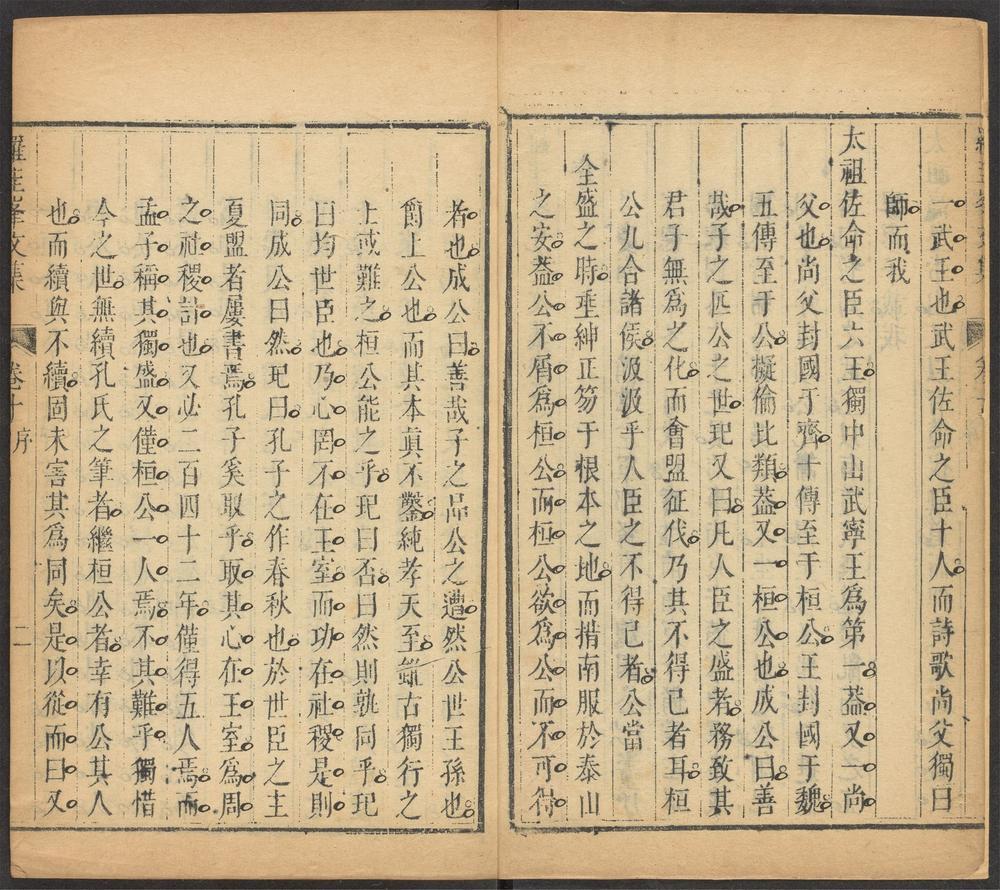 一武王也武王佐命之臣十人而詩歌尚父獨曰
師而我
太祖佐命之臣六王獨中山武寧王爲第一蓋又一尚
父也尚父封國于齊十傳至于桓公王封國于魏
五傳至于公擬倫比類蓋又一桓公也成公曰善
哉子之匹公之世玘又曰凡人臣之盛者務致其
君子無爲之化而會盟征伐乃其不得已者耳桓
公九合諸侯汲汲乎人臣之不得已者公當
全盛之時垂紳正笏于根本之地而措南服於泰山
之安蓋公不屑爲桓公而桓公欲爲公而不可得
者也成公曰善哉子之品公之遭然公世王孫也
爵上公也而其本眞不鑿純孝天至 古獨行之
上或難之桓公能之乎玘曰否曰然則孰同乎玘
曰均世臣也乃心罔不在王室而功在社稷是則
同成公曰然玘曰孔子之作春秋也於世臣之主
夏盟者屢書焉孔子奚取乎取其心在王室爲周
之社稷計也又必二百四十二年僅得五人焉而
孟子稱其獨盛又僅桓公一人焉不其難乎獨惜
今之世無續孔氏之筆者繼桓公者幸有公其人
也而續與不續固未害其爲同矣是以從而曰又
羅圭峯文集
卷十
序
二